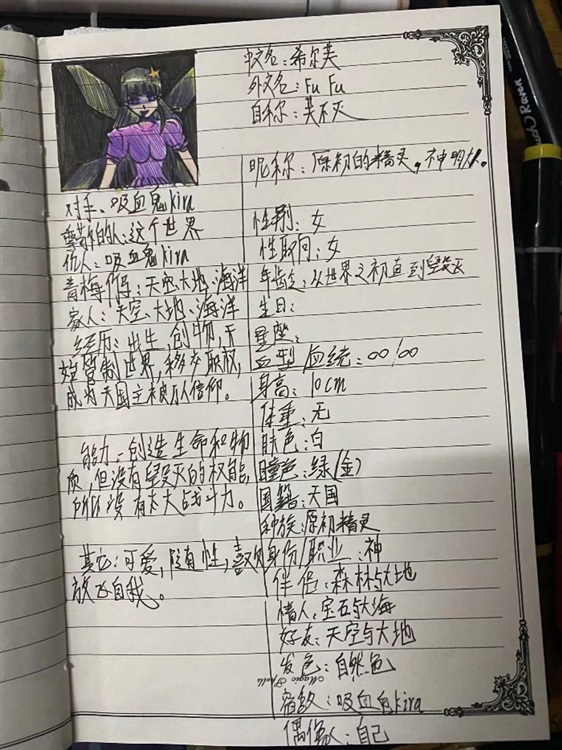 中文名:希尔芙
外文名:Fu Fu
自称:芙不灭
昵称:原初的精灵,神明大人
性别:女
性取向:女
年龄:从世界之初直到毁灭
生日:
星座:
血型 血统:∞/∞
身高:10cm
体重:无
肤色:白
瞳色:绿(金)
国籍:天国
种族:原初精灵
身份/职业:神
伴侣:森林与大地
情人:宝石与大海
好友:天空与大地
发色:自然色
宿敌:吸血鬼kira
偶像:自己
对手、吸血鬼kira
的人:这个世界
仇人:吸血鬼kira
青梅竹马:天空、大地、海洋
家人:天空、大地、海洋
经历:出生,创物,开
始管制世界,移交职权,
成为天国主被万人信仰。
能力-创造生命和物
质,但没有毁灭的权能,
所以没有太大战斗力。
其它:可爱,随有性,喜欢
放飞自我。
Magic Spell
Raven